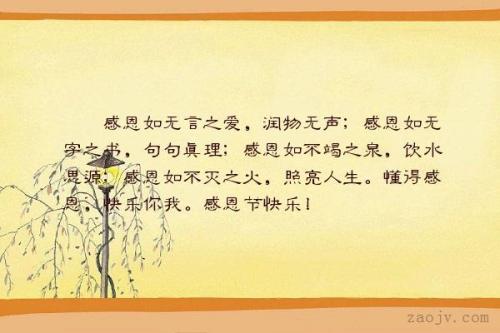 感恩如无言之爱，润物无声；感恩如无
字之书，句句真理；感恩如不竭之泉，饮水
思源；感恩如不灭之火，照亮人生。懂得感
恩，快乐你我。感恩节快乐！
zaojv.com